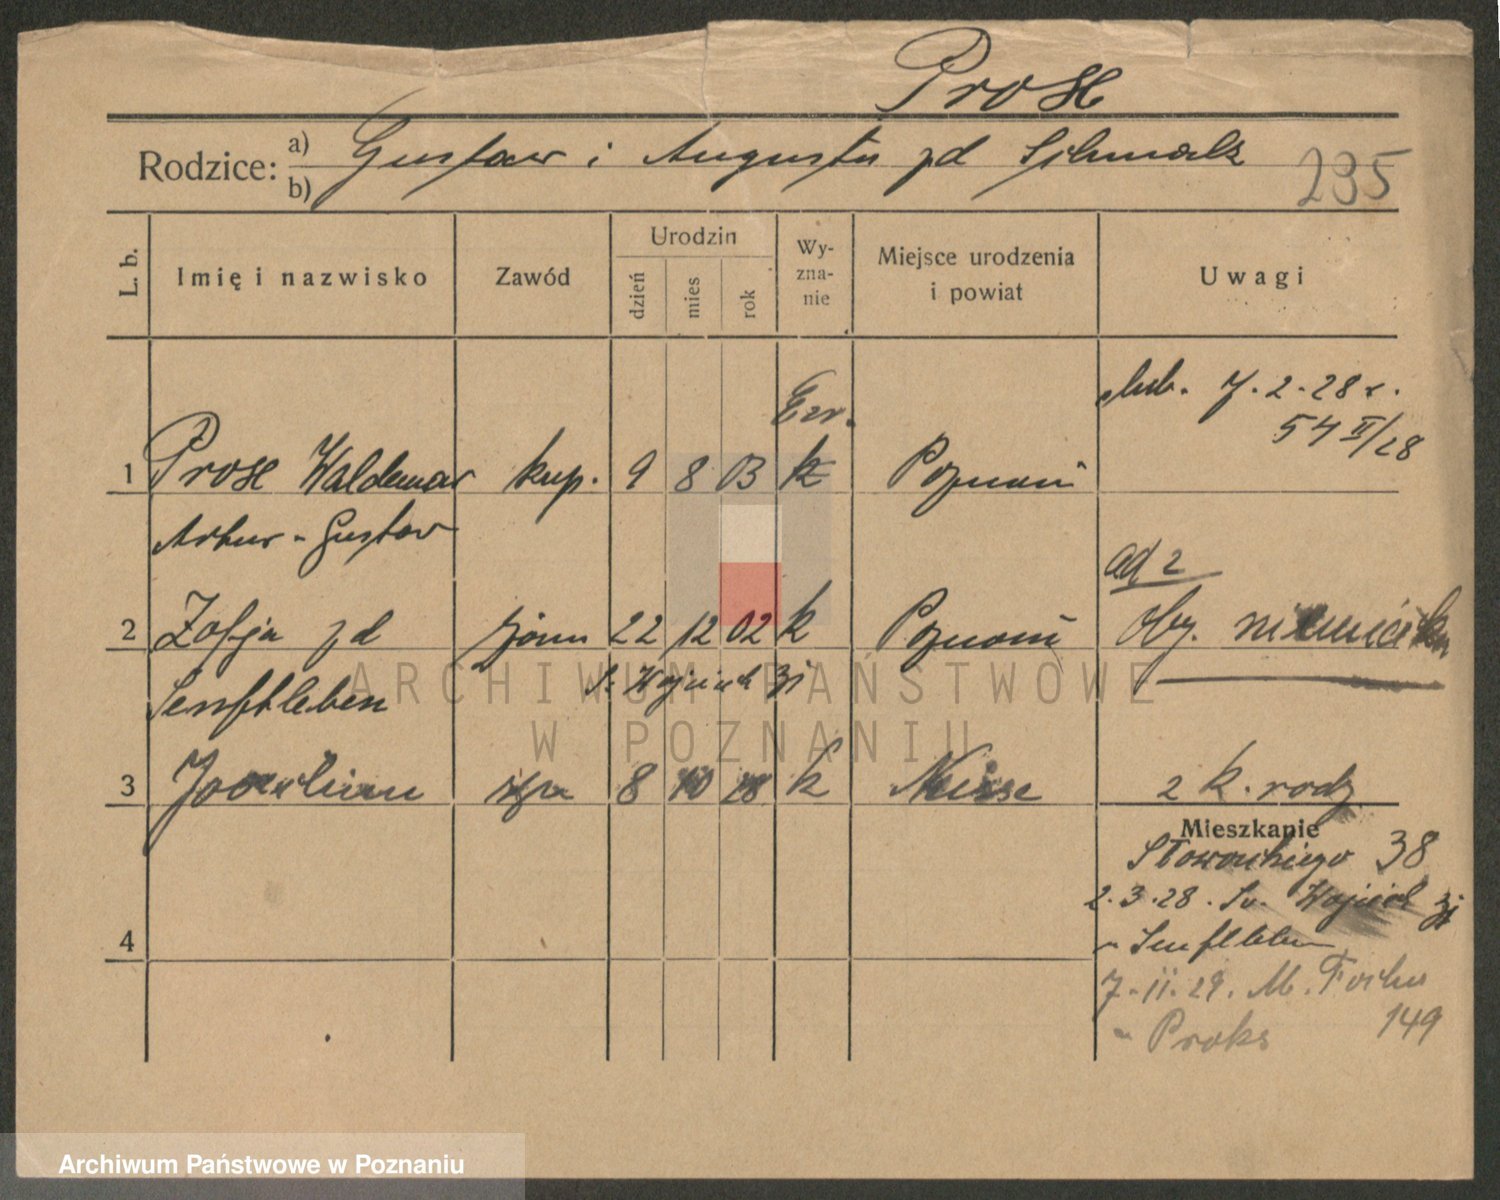 Prose
Rodzice: a) b) Gustaw i Augusta zd Schmalz
235
L. b.
Imię i nazwisko
Zawód
Urodzin
dzień
mies
rok
Wy-
zna-
nie
Miejsce urodzenia
i powiat
Uwagi
ślub. 7.2.28 r.
54 II/28
Ew.
1 Prose Waldemar kup. 9 8 03 k Poznań
Artur-Gustav
ad 2
2 Zofja zd żona 22 12 02 k Poznań oby. niemiecka
Senftleben Św. Wojciech 31
3 8 10 28 k Neisse 2 k. rodz
Mieszkanie
Słowackiego 38
2.3.28. Św. Wojciech 31
Senftleben
4
7-11-29. M. Focha
149
Proks
ARCHIWUM PAŃSTWOWE
W POZNANIU
Archiwum Państwowe w Poznaniu